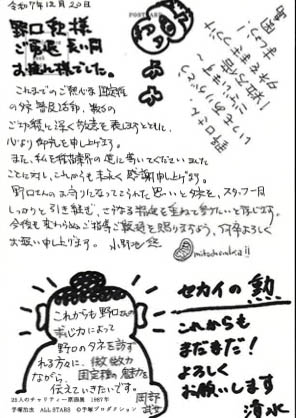 令和7年12月20日
POSTCARD
野口勲様
ご勇退 長い間
お疲れ様でした。
野口さん!
いつもありがとう
ございます〜
これまでのご熱心な固定種
のタネ 普及活動、数々の
ご功績に深く敬意を表しますとともに、
心より御礼を申し上げます。
また、私を種苗業界の道に導いてくださいました
ことに対し、これからも末永く感謝申し上げます。
野口さんのお守りになってこられた思いとタネを、スタッフ一同
しっかりと引き継ぎ、さらなる精進を重ねて参りたいと存じます。
今後も変わらぬご指導ご鞭撻を賜りますよう、何卒よろしく
お願い申し上げます。 小野地 悠
mitochondria!!
これからも野口さんの
求心力によって
野口のタネを訪す
れる方々に、微微力
ながら、固定種の魅力を
伝えていきたいです。
岡部
セカイの勲
これからも
まだまだ!
よろしく
お願いします
清水
25人のチャリティー原画展 1987年
手塚治虫 ALL STARS ©手塚プロダクション